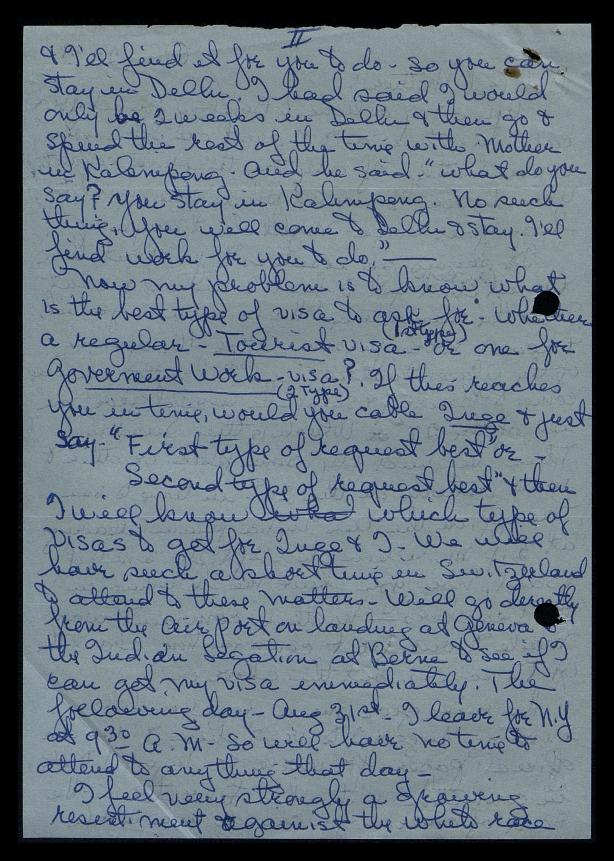 II
& I'll find it for you to do - so you can
stay in Delhi. I had said I would
only be 2 weeks in Delhi & then go &
spend the rest of the time with Mother
in Kalimpong. And he said - "what do you
say? You stay in Kalimpong. No such
thing, you will come to Delhi & stay. I'll
find work for you to do." —
Now my problem is to know what
is the best type of visa to ask for - whether
a regular - Tourist visa - (1st type) or one for
Goverment Work - visa? (2 Type) If this reaches
you in time, would you cable Inge & just
say - "First type of request best" or -
Second type of request best" & then
I will know what which type of
visas to get for Inge & I. We will
have such a short time in Switzerland
to attend to these matters - Will go directly
from the air port on landing at Geneva to
the Indian Legation at Berne to see if I
can get my visa immediately. The
following day - Aug 31st - I leave for N.Y
at 9 30 A.M - So will have no time to
attend to anything that day -
I feel very strongly a growing
resentiment against the white race